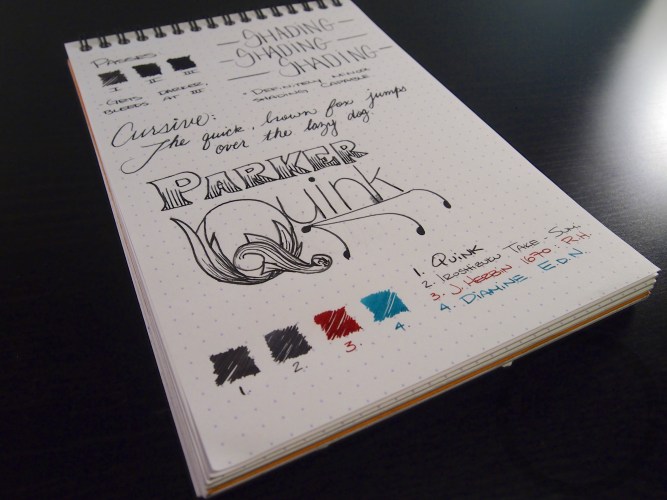 PASSES:
I II III
- GETS DARKER,
BLEEDS AT III
SHADING
SHADING
SHADING
• DEFINITELY
SHADING CAPABLE
Cursive:
The quick, brown fox jumps
over the lazy dog.
PARKER
Quink
1. QUINK
2. IROSHIZUKU TAKE-SUMI
3. J. HERBIN 1670: R.H.
4. DIAMINE E.D.N.
1. 2. 3. 4.